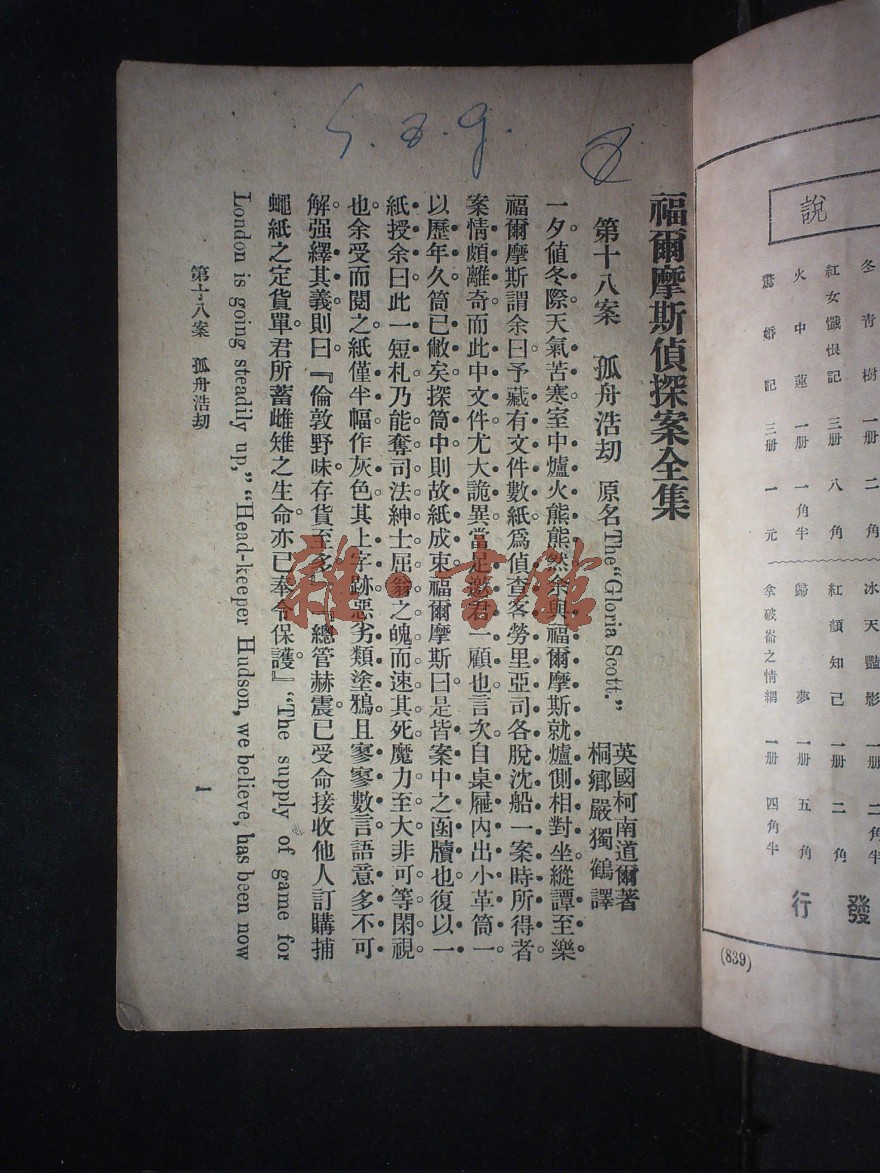 S. 8. g.
福爾摩斯偵探案全集
第十八案 孤舟浩刼 原名The "Gloria Scott."
英國柯南道爾著
桐鄉嚴獨鶴譯
一夕値冬際天氣苦寒室中爐火熊熊然余與福爾摩斯就爐側相對坐縱譚至樂。
福爾摩斯謂余曰予藏有文件數紙爲偵查客勞里亞司各脫沈船一案時所得者
案情頗離奇而此中文件尤大詭異當足邀君一顧也言次自桌屜內出小革筒一
以歷年久筒已敝矣探筒中則故紙成束福爾摩斯曰是皆案中之函牘也復以一
紙授余曰此一短札乃能奪司法紳士屈翁之魄而速其死魔力至大非可等閑視
也余受而閱之紙僅半幅作灰色其上字跡惡劣類塗鴉且寥寥數言語意多不可
解强繹其義則曰『倫敦野味存貨至多 總管赫震已受命接收他人訂購捕
蠅紙之定貨單君所蓄雌雉之生命亦已奉令保護』 “The supply of game for
London is going steadily up,” “Head-keeper Hudson, we believe, has been now
第十八案 孤舟浩刼
1
說
冬靑樹 一册 二角
紅女懺恨記 三册 八角
火中蓮 一册 一角半
驚婚記 三册 一元
冰天豔影 一册 二角半
紅顏知己 一册 二角
歸夢 一册 五角
拿破崙之情網 一册 四角半
發行
(839)
雜·書館